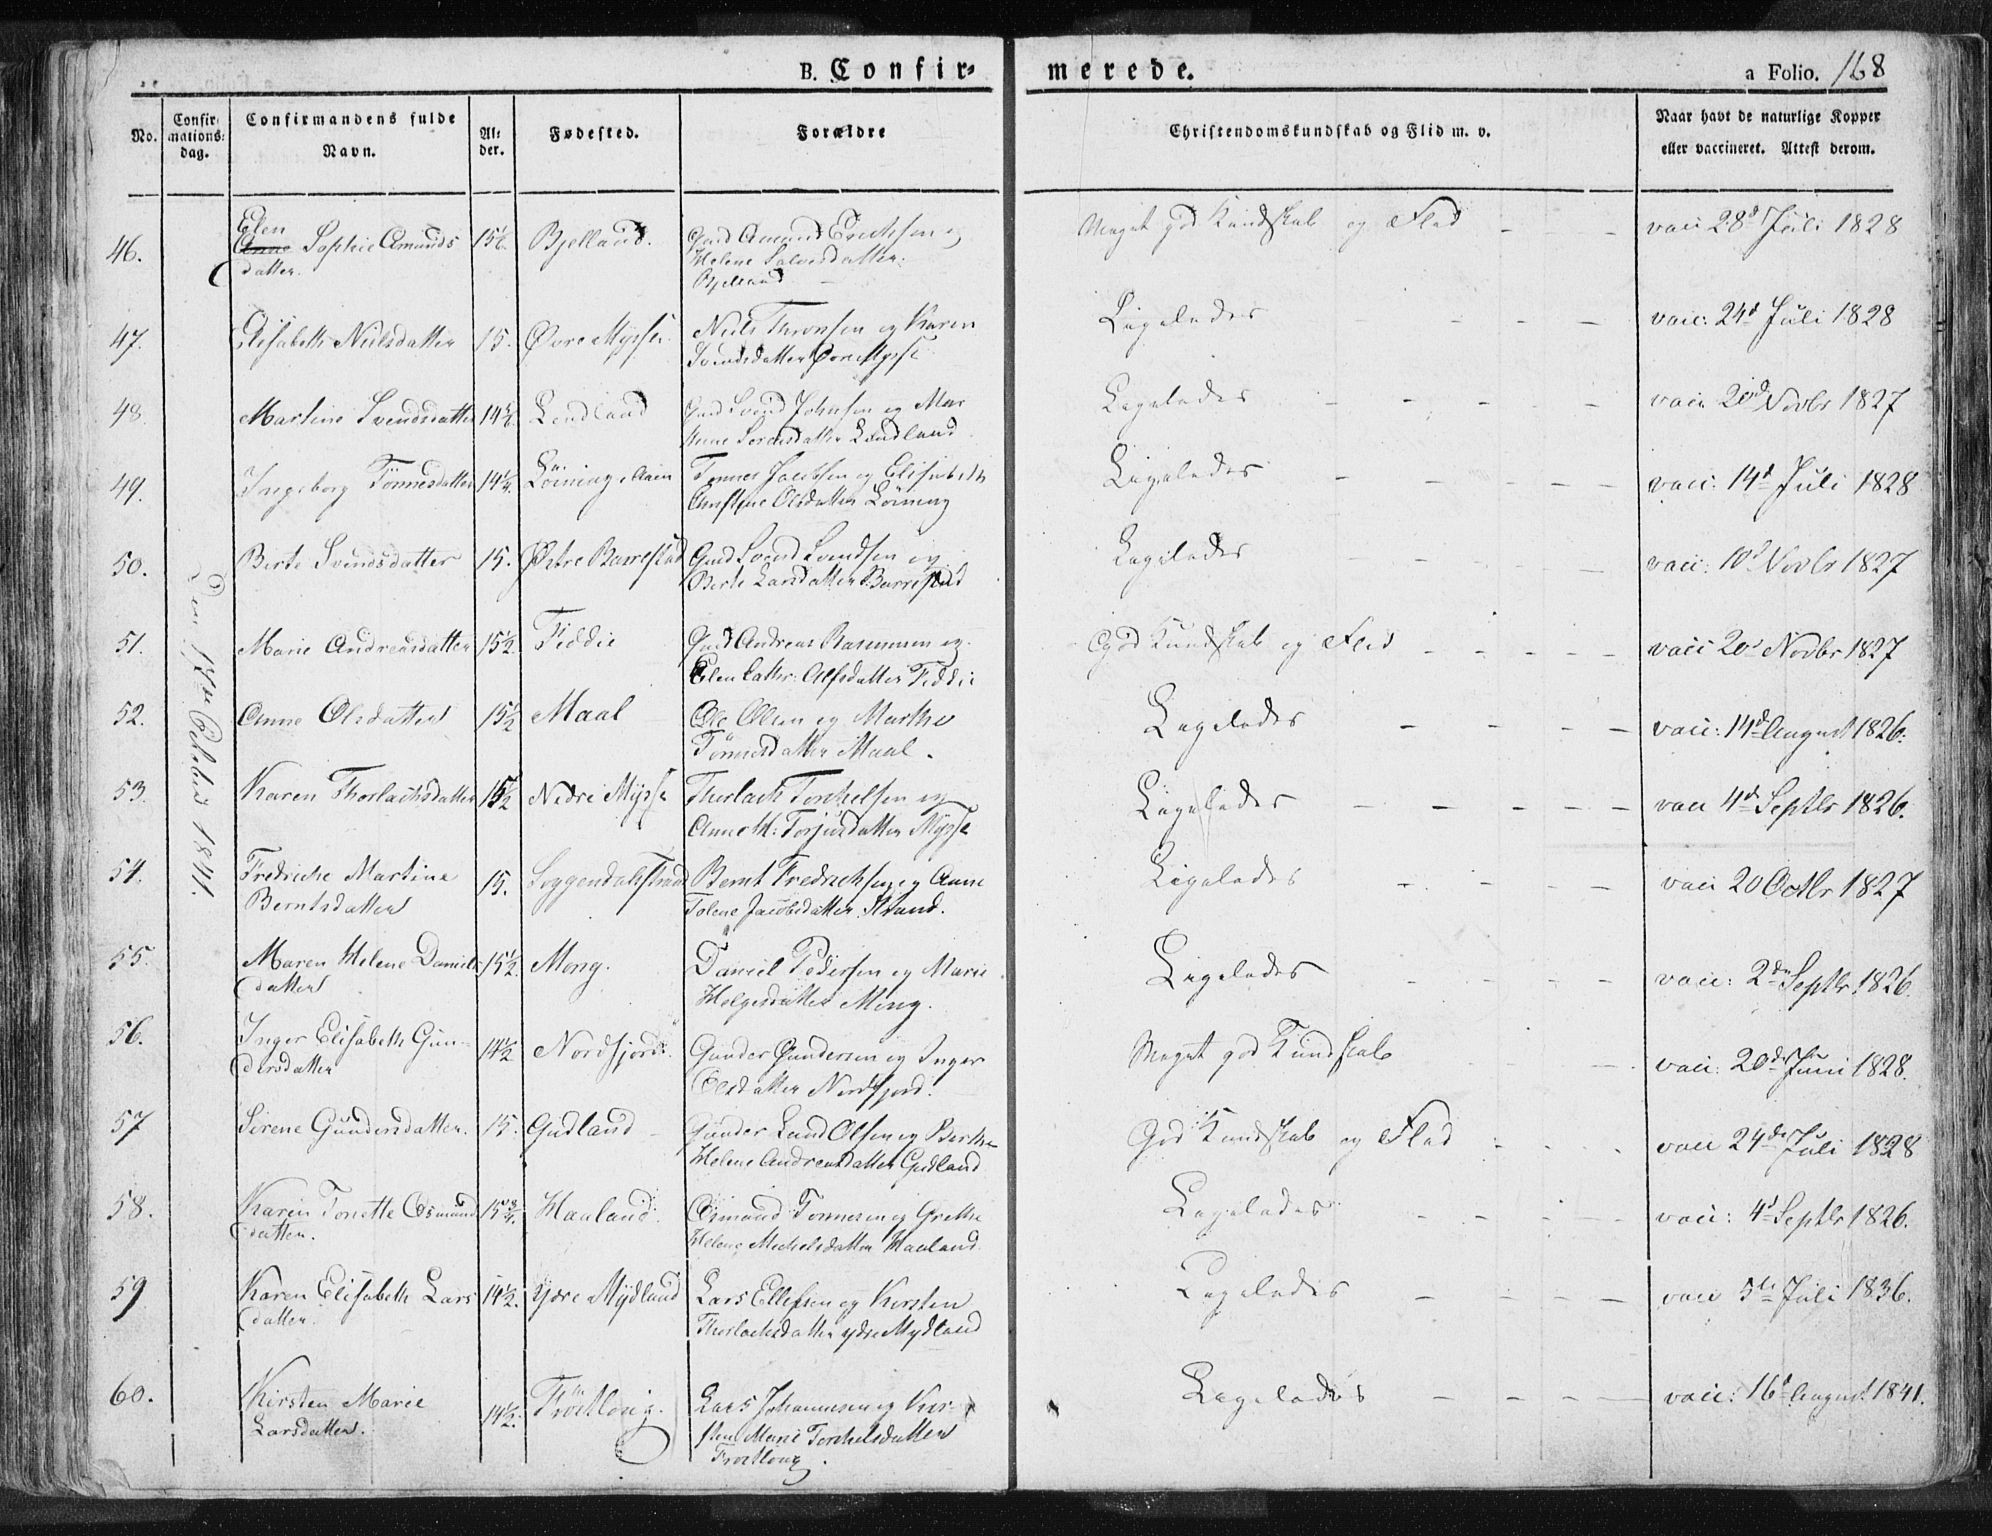 B. Confir-
merede.
a Folio. 168
No.
Confir-
mations-
dag.
Confirmandens fulde
Navn.
Al-
der.
Fødested.
Forældre
Christendomskundskab og Flid m. v.
Naar havt de naturlige Kopper
eller vaccineret. Attest derom.
Den 17de October 1841.
46.
Elen
Anne Sophie Amunds
datter.
15½
Bjelland.
Gmd Amund Erichsen og
Helene Salvesdatter
Bjelland
Meget god Kundskab og Flid - - -
vacc 28d Juli 1828
47.
Elisabeth Nielsdatter
15.
Øvre Mysse
Niels Thronsen og Karen
Svendsdatter Øvre Mysse
Ligeledes - - - -
vacc: 24d Juli 1828
48
Martine Svendsdatter
14½
Lendland
Gmd Svend Johnsen og Mar
Lendland
Ligeledes - - - -
vacc 20d Novbr 1827
49.
Ingeborg Tönnesdatter
14¼
Löining
Tönnes Jacobsen og Elisabeth
Olsdatter Löining
Ligeledes - - - -
vacc: 14d Juli 1828
50.
Berte Svendsdatter
15.
Østre Barrestad
Gmd Svend Svendsen og
Berte Larsdatter Barrestad
Ligeledes - - - -
vacc: 10d Novbr 1827
51.
Marie Andreasdatter
15½
Fiddie
Gmd Andreas Rasmussen og
Elen Cathr: Alfsdatter Fiddie
God Kundskab og Flid - - - -
vacc 20d Novbr 1827
52.
Anne Olsdatter
15½
Maal
Ole Olsen og Marthe
Tönnesdatter Maal.
Ligeledes - - - -
vacc: 14d August 1826.
53.
Karen Thorlachsdatter
15½
Nedre Mysse
Thorlach Torkelsen og
Anne M: Torjusdatter Mysse
Ligeledes - - - -
vacc 4d Septbr 1826.
54.
Fredriche Martine
Berntsdatter
15.
Soggendalstrand
Bernt Fredrichsen og Anne
Tolene Jacobsdatter Strand.
Ligeledes - - - -
vacc 20 Octbr 1827
55.
Maren Helene Daniels
datter
15½
Mong.
Daniel Pedersen og Marie
Helgesdatter Mong.
Ligeledes - - - -
vacc: 2de Septbr 1826.
56.
Inger Elisabeth Gun-
dersdatter
14½
Nordfjord.
Gunder Gundersen og Inger
Olsdatter Nordfjord.
Meget god Kundskab - - -
vacc: 20de Juni 1828.
57
Sirene Gundersdatter.
15.
Gudland -
Gunder Lund Olsen og Berthe
Helene Andreasdatter Gudland
God Kundskab og Flid - - -
vacc 24de Juli 1828
58.
Karen Tonette Osmund
datter.
15¾
Haaland.
Osmund Tönnesen og Grethe
Helene Michelsdatter Haaland.
Ligeledes - - - -
vacc: 4d Septbr 1826.
59
Karen Elisabeth Lars
datter.
14½.
Ydre Mydland
Lars Ellefsen og Kirsten
Thorlachsdatter ydre Mydland
Ligeledes - - - -
vacc 5te Juli 1836.
60.
Kirsten Marie
Larsdatter.
14½.
Fröitlong.
Lars Johannesen og Kir-
sten Marie Torkelsdatter
Fröitlong.
Ligeledes - - - -
vacc: 16d August 1841.